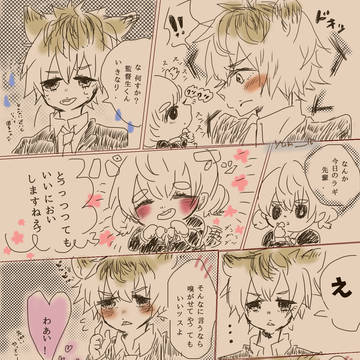 な 何すか?
監督生くん
いきなり
!!
ドキッ
クンクン
スンスン
スンスン
なんか
今日のラギ
先輩
とっつつっても
いいにおい
しますねぇ?
え
そんなに言うなら
嗅がせてやっても
いいッスよ
わあい!